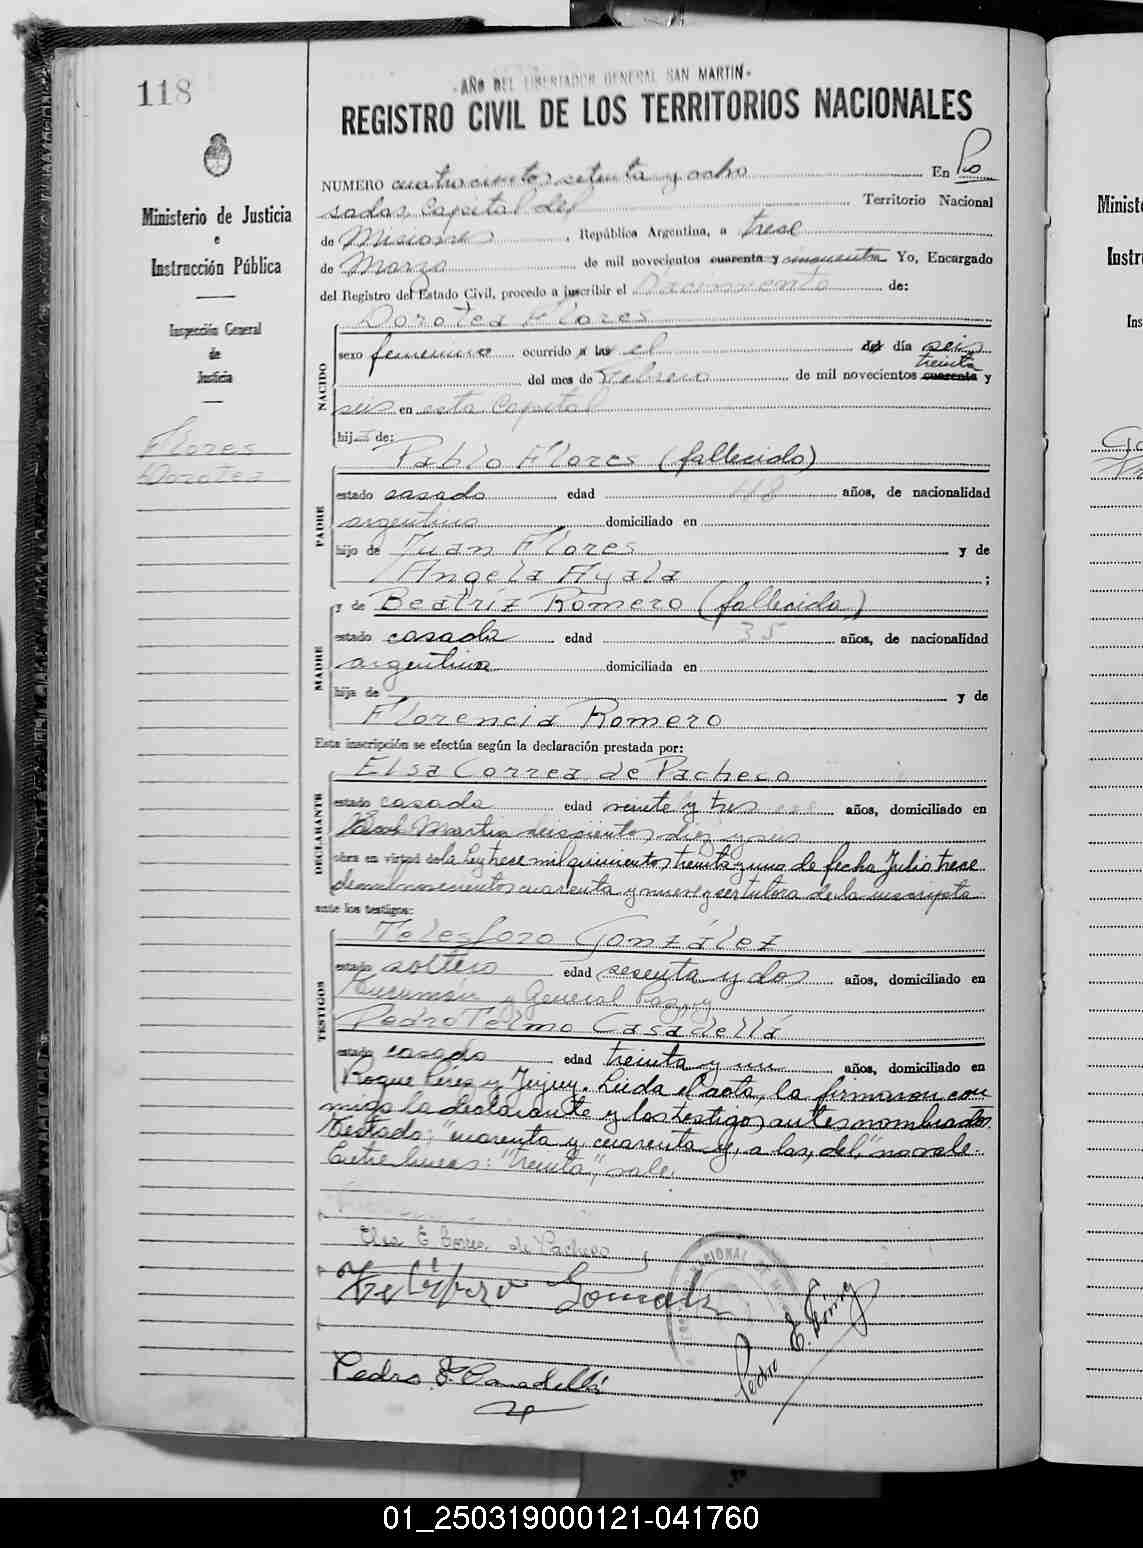 118
-AÑO DEL LIBERTADOR GENERAL SAN MARTIN-
REGISTRO CIVIL DE LOS TERRITORIOS NACIONALES
Ministerio de Justicia
e
Instrucción Pública
Inspección General
de
Justicia
Flores
Dorotea
NUMERO cuatrocientos setenta y ocho En Po
sadas, Capital del Territorio Nacional
de Misiones, República Argentina, a trece
de Marzo de mil novecientos cuarenta y cincuenta Yo, Encargado
del Registro del Estado Civil, procedo a inscribir el Nacimiento de:
Dorotea Flores
NACIDO
sexo femenino ocurrido a las el del día seis
treinta
del mes de Febrero de mil novecientos cuarenta y
seis en esta Capital
hija de:
Pablo Flores (fallecido)
PADRE
estado casado edad 48 años, de nacionalidad
argentino domiciliado en
hijo de Juan Flores y de
Angela Ayala;
y de Beatríz Romero (fallecida)
MADRE
estado casada edad 35 años, de nacionalidad
argentina domiciliada en
hija de y de
Florencia Romero
Esta inscripción se efectúa según la declaración prestada por:
Elsa Correa de Pacheco
DECLARANTE
estado casada edad veinte y tres años, domiciliado en
Martin seiscientos diez y seis
obra en virtud de la Ley trece mil quinientos treinta y uno de fecha Julio trece
de mil novecientos cuarenta y nueve y ser tutora de la inscripta
ante los testigos:
Telesforo González
TESTIGOS
estado soltero edad sesenta y dos años, domiciliado en
Tucumán y General Paz, y
Pedro Telmo Casadellá
estado casado edad treinta y un años, domiciliado en
Roque Pérez y Jujuy. Leída el acta, la firmaron con
migo la declarante y los testigos antes nombrados.
Testado: "cuarenta y, cuarenta y, a las, del," no vale.
Entre lineas: "treinta", vale.
Elsa E Correa de Pacheco
Telésforo Gonzalez
Pedro T. Casadellá
Pedro E.
Minist
Instr
Ins
01_250319000121-041760